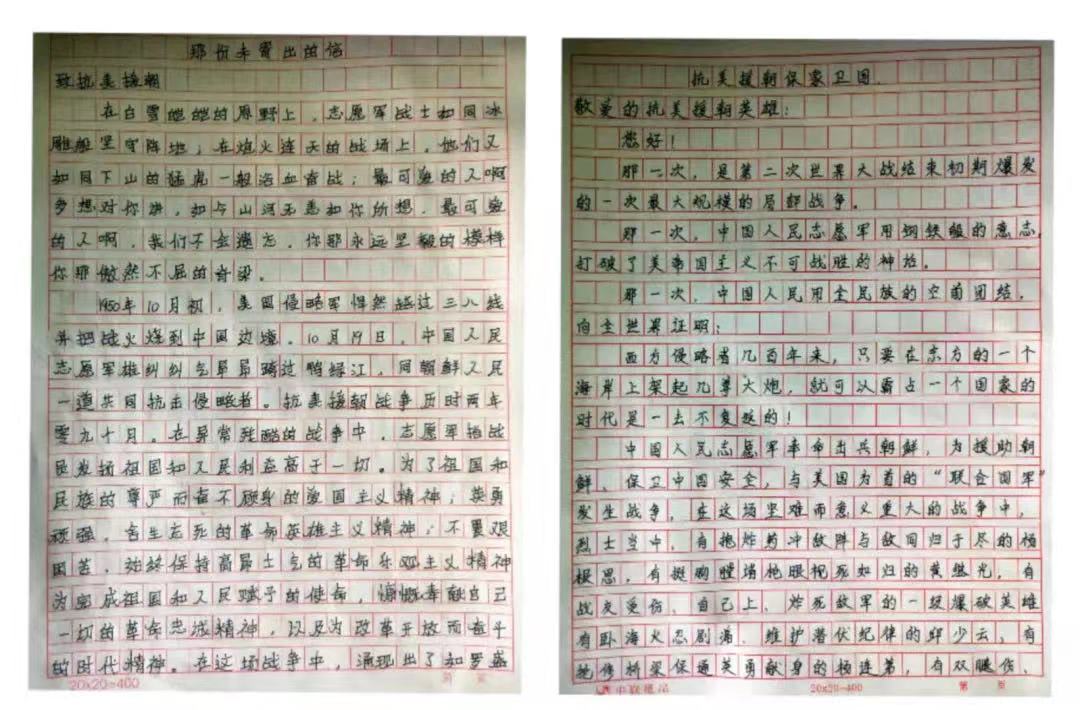 那份未寄出的信
致抗美援朝
在白雪皑皑的原野上，志愿军战士如同冰
雕般坚守阵地；在炮火连天的战场上，他们又
如同下山的猛虎一般浴血奋战；最可爱的人啊
多想对你讲，如今山河无恙如你所想，最可爱
的人啊，我们不会遗忘，你那永远坚毅的模样
你那傲然不屈的脊梁。
1950年10月初，美国侵略军悍然越过三八线
并把战火烧到中国边境。10月19日，中国人民
志愿军雄纠纠气昂昂跨过鸭绿江，同朝鲜人民
一道共同抗击侵略者。抗美援朝战争历时两年
零九个月。在异常残酷的战争中，志愿军指战
员发扬祖国和人民利益高于一切。为了祖国和
民族的尊严而奋不顾身的爱国主义精神；英勇
顽强、舍生忘死的革命英雄主义精神；不畏艰
困苦，始终保持高昂士气的革命乐观主义精神
为完成祖国和人民赋予的使命，慷慨奉献自己
一切的革命忠诚精神，以及为改革开放而奋斗
的时代精神。在这场战争中，涌现出了如罗盛
20x20=400
第 页
抗美援朝保家卫国.
敬爱的抗美援朝英雄：
您好！
那一次，是第二次世界大战结束初期爆发
的一次最大规模的局部战争。
那一次，中国人民志愿军用钢铁般的意志，
打破了美帝国主义不可战胜的神话。
那一次，中国人民用全民族的空前团结，
向全世界证明：
西方侵略者几百年来，只要在东方的一个
海岸上架起几尊大炮，就可以霸占一个国家的
时代是一去不复返的！
中国人民志愿军奉命出兵朝鲜，为援助朝
鲜、保卫中国安全，与美国为首的“联合国军”
发生战争，在这场坚难而意义重大的战争中，
烈士当中，有抱炸药冲敌阵与敌同归于尽的杨
根思，有挺胸膛堵枪眼视死如归的黄继光，有
战友受伤、自己上、炸死敌军的一级爆破英雄
有卧海火忍剧痛、维护潜伏纪律的邱少云，有
抢修桥梁保通英勇献身的杨连第，有双腿伤、
20x20=400
第 页